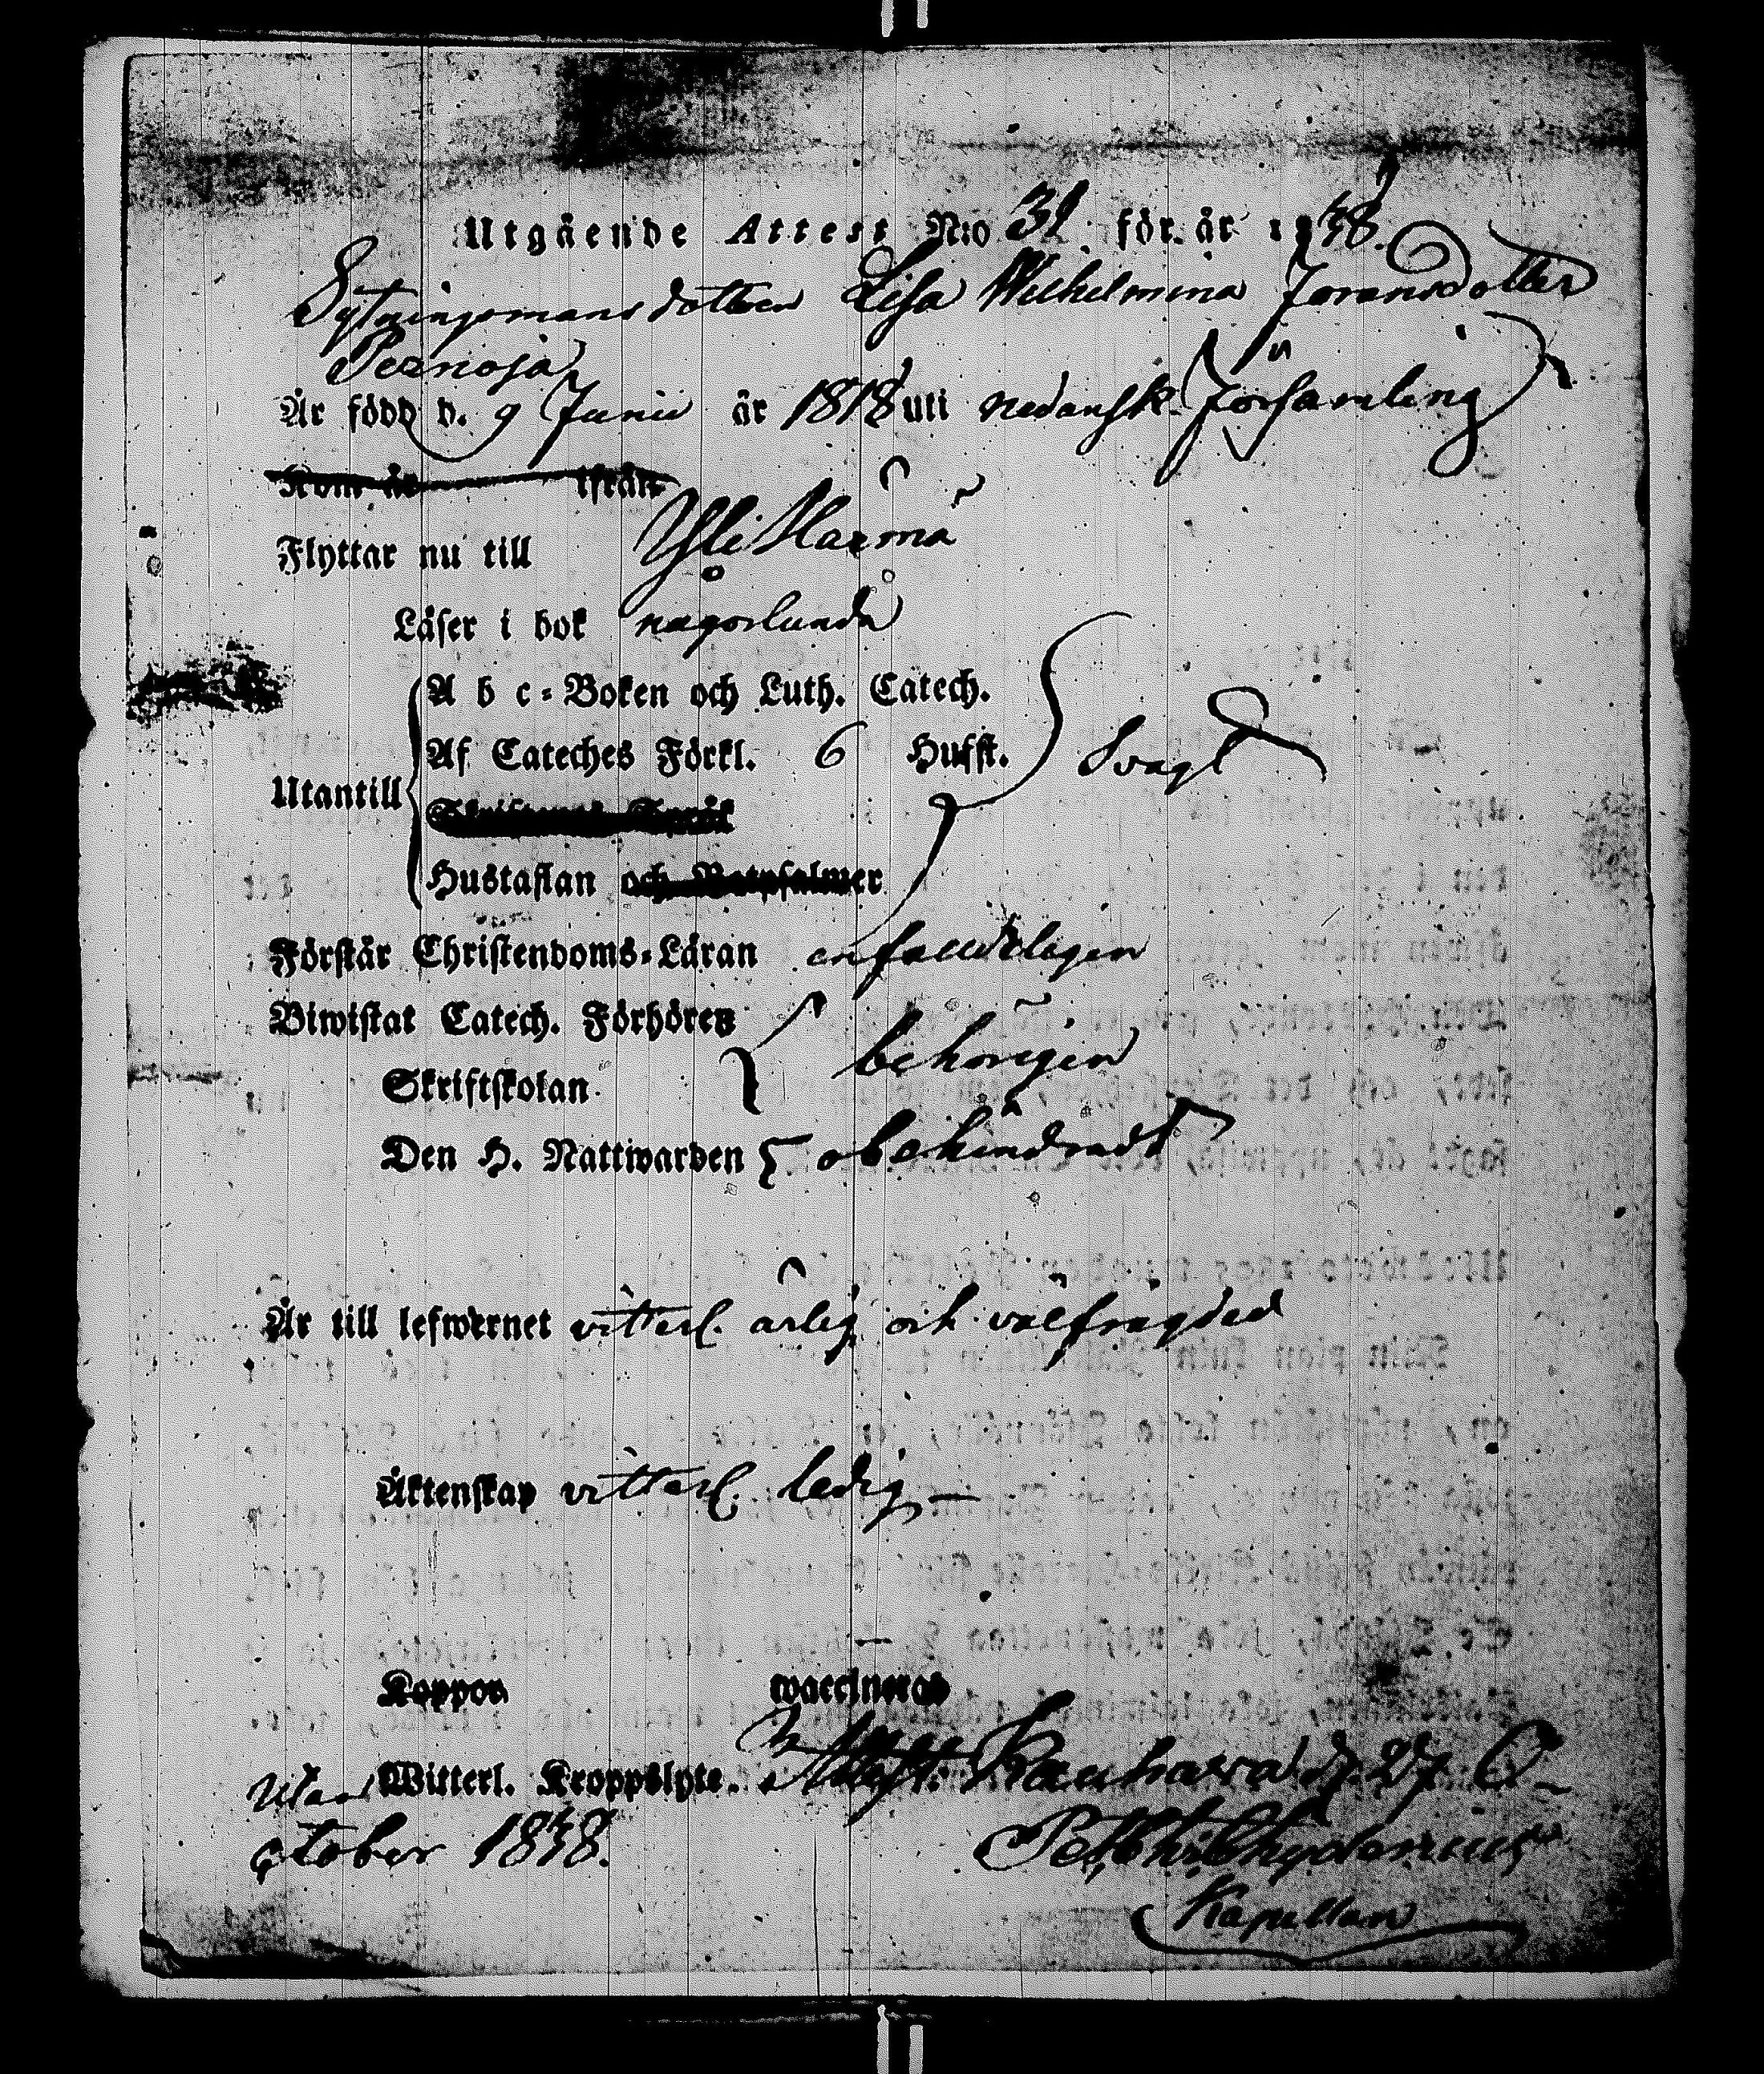 Utgående Attest N:o 31. för år 1838.
Sytningsmansdottren Lisa Wilhelmina Joransdotter
Pernoja
Är född d. 9 Junii år 1818 uti nedansk. Församling
Kom år ifrån
Flyttar nu till Yli Härmä
Läser i bok någorlunda
A b c-Boken och Luth. Catech.
Af Cateches Förkl. 6 Hufst. Svagt
Utantill
Hustaflan och Botpsalmer
Förstår Christendoms-Läran enfaldeligen
Biwistat Catech. Förhöret
Skriftskolan. behörigen
Den H. Nattwarden obehindradt
Är till lefwernet vitterl. ärlig och välfrägdad
Äktenskap vitterl. ledig
Koppor waccinerad
Utan Witterl. Kroppslyte. Attest. Kauhava d. 27 O-
ctober 1838.
Kapellan